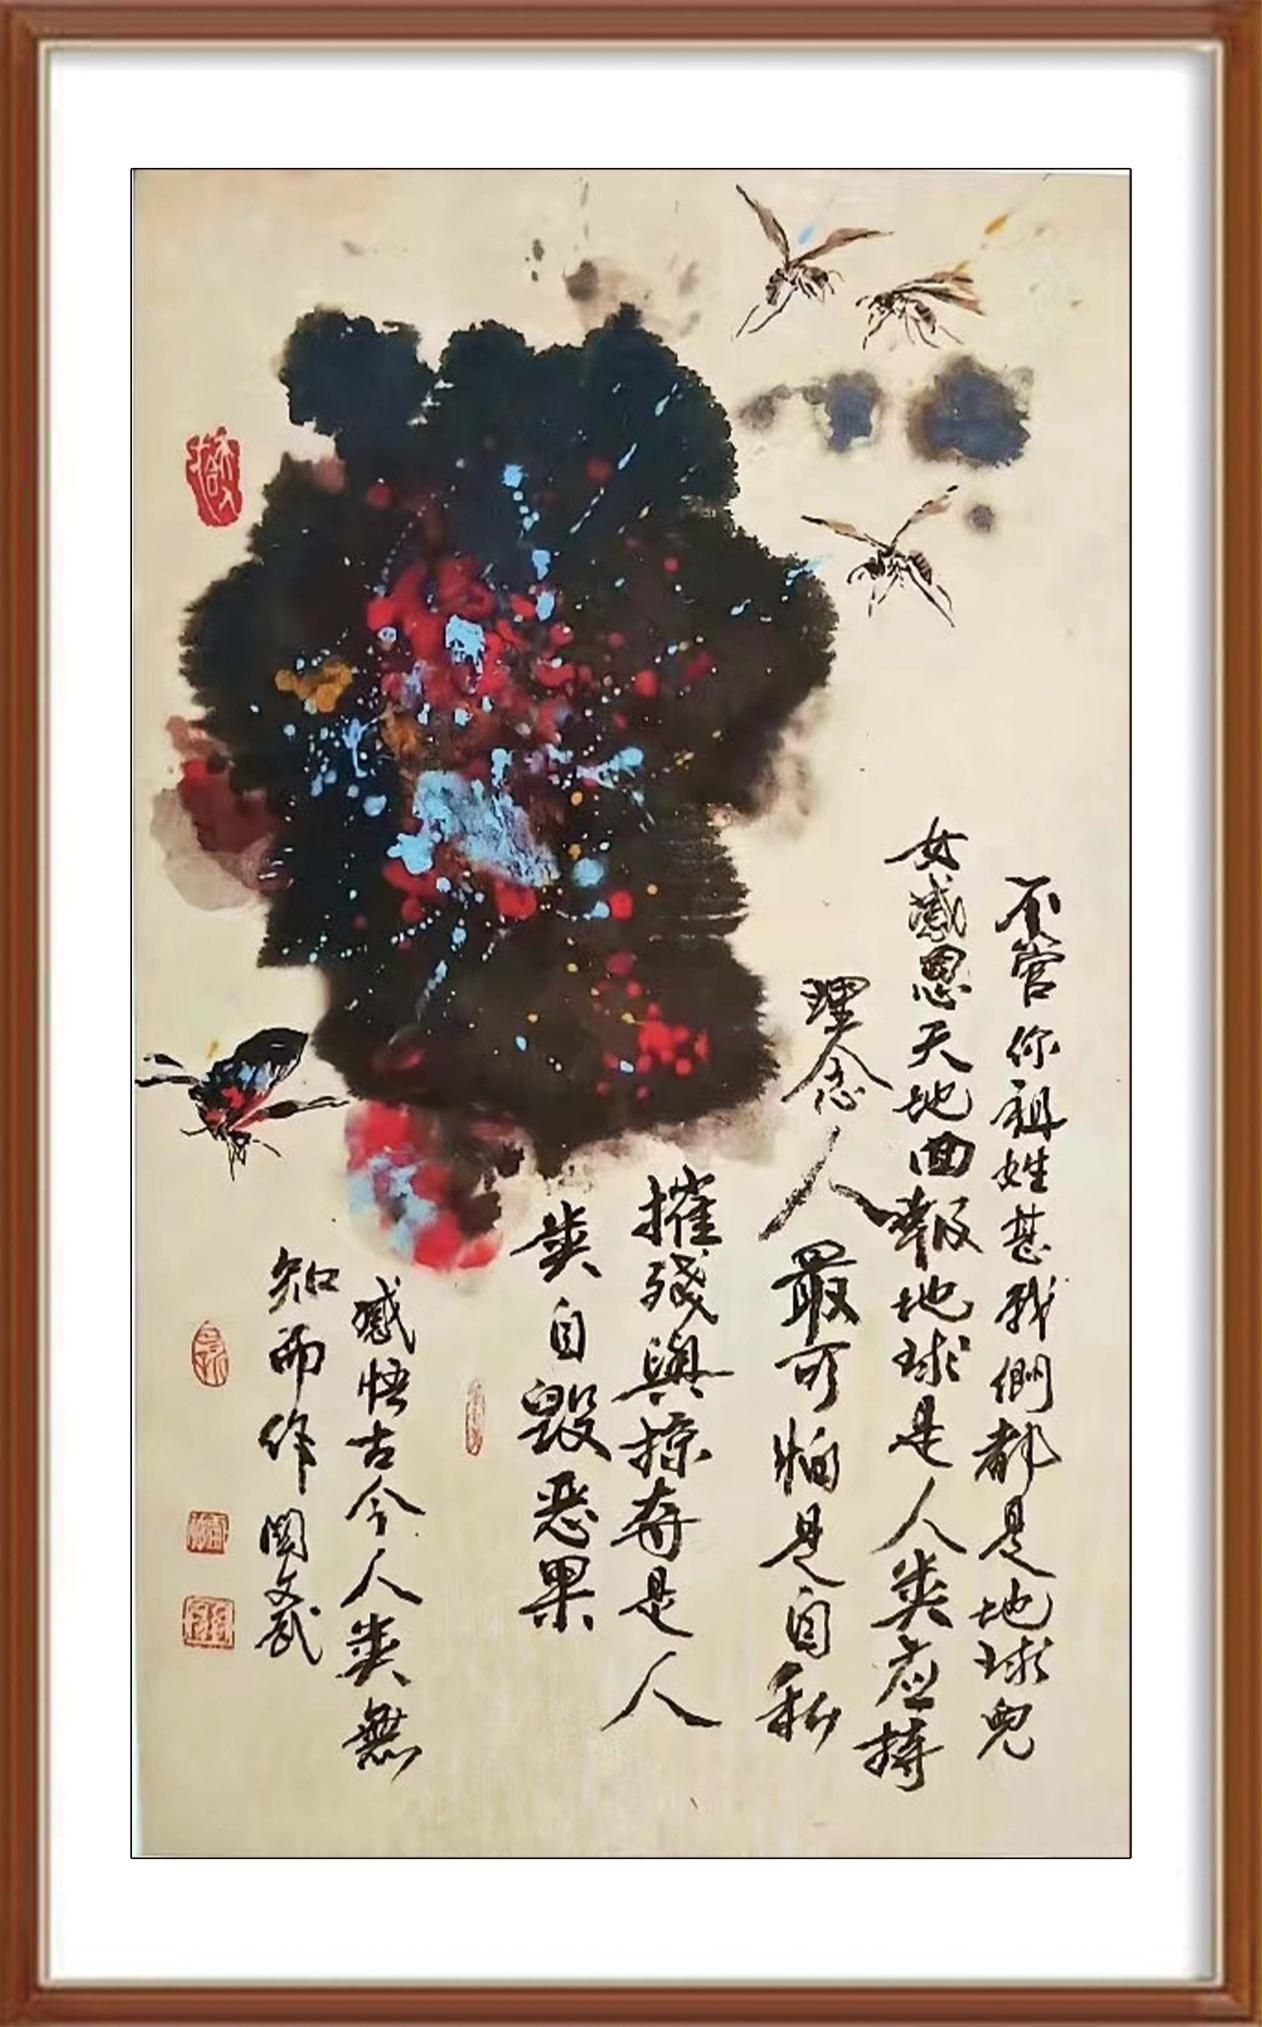 不管你祖姓甚我們都是地球兒
女感恩天地回報地球是人类应持
理念人最可怕是自私
摧殘與掠夺是人
类自毁恶果
感悟古今人类無
知而作閻文武